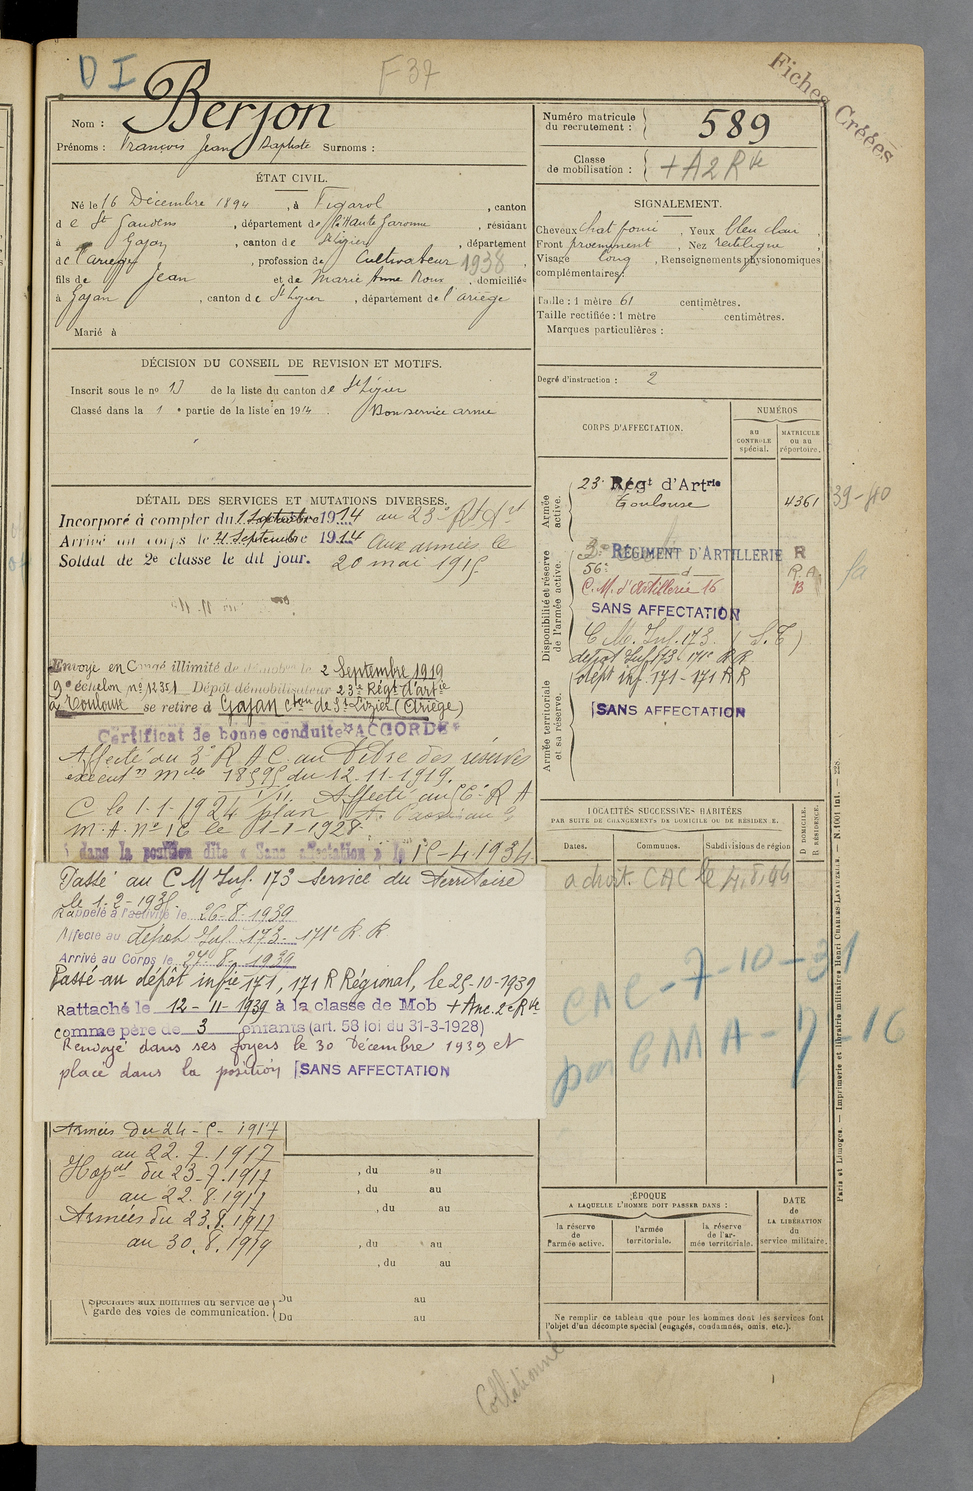 D I
F 37
Fiches Créées
Nom : Berjon
Prénoms : François Jean Baptiste Surnoms :
ÉTAT CIVIL.
Né le 16 Décembre 1894, à Figarol, canton
de St Gaudens, département de la Haute Garonne, résidant
à Gajan, canton de St Lizier, département
de l'Ariège, profession de Cultivateur 1938,
fils de Jean et de Marie Anne Rous, domiciliés
à Gajan, canton de St Lizier, département de l'ariège
Marié à
DÉCISION DU CONSEIL DE REVISION ET MOTIFS.
Inscrit sous le no 13 de la liste du canton de St Lizier
Classé dans la 1e partie de la liste en 1914. Bon service armé
DÉTAIL DES SERVICES ET MUTATIONS DIVERSES.
Incorporé à compter du 1 Septembre 1914 au 23e Rt d'Art
Arrivé au corps le 4 Septembre 1914 Aux armées le
Soldat de 2e classe le dit jour. 20 mai 1915
Envoyé en Congé illimité de démobon le 2 Septembre 1919
9e échelon no 12351 Dépôt démobilisateur 23e Régt d'artie
à Toulouse se retire à Gajan cton de St Lizier (Ariège)
Certificat de bonne conduite "ACCORDÉ"
Affecté au 3e R.A.C. au titre des réserves
C le 1-1-1924 plan A. Affecté au 56e R A
m.A. no 16 le 1-1-1928
dans la position dite « Sans affectation » le 15-4-1934
Passé au C M Inf. 173 service du territoire
le 1-2-1938.
Rappelé à l'activité le 26-8-1939
Affecté au dépôt Inf. 173 - 171e R.R
Arrivé au Corps le 27-8-1939
Passé au dépôt infie 171, 171 R Régional, le 25-10-1939
Rattaché le 12-11-1939 à la classe de Mob + Anc. 2e Rve
comme père de 3 enfants (art. 58 loi du 31-3-1928)
Renvoyé dans ses foyers le 30 Décembre 1939 et
placé dans la position SANS AFFECTATION
Armées du 24-5-1917
au 22.7.1917
Hopal du 23-7-1917
au 22.8.1917
Armées du 23.8.1917
au 30.8.1919
, du au
, du au
, du au
, du au
, du au
Spéciales aux hommes du service de
garde des voies de communication.
Du au
Du au
Numéro matricule
du recrutement : 589
Classe
de mobilisation : + A 2 Rve
SIGNALEMENT.
Cheveux chat foncé, Yeux bleu clair,
Front proeminent, Nez rectiligne,
Visage long, Renseignements physionomiques
complémentaires :
Taille : 1 mètre 61 centimètres.
Taille rectifiée : 1 mètre centimètres.
Marques particulières :
Degré d'instruction : 2
CORPS D'AFFECTATION.
NUMÉROS
au
CONTRÔLE
spécial.
MATRICULE
ou au
répertoire.
Armée
active.
23e Régt d'Artrie
Toulouse
4361
39-40
Disponibilité et réserve
de l'armée active.
3e RÉGIMENT D'ARTILLERIE R
56e d R.A.
C.M. d'artillerie 16 B
SANS AFFECTATION
C.M. Inf. 173. (S.T)
dépôt Inf 173 171e R.R.
dépôt inf. 171 - 171 R R
Armée territoriale
et sa réserve.
SANS AFFECTATION
LOCALITÉS SUCCESSIVES HABITÉES
PAR SUITE DE CHANGEMENTS DE DOMICILE OU DE RÉSIDENCE.
Dates.
Communes.
Subdivisions de région
D DOMICILE.
R RÉSIDENCE.
a droit. CAC le 4.8.44
CAC - 7-10-31
par CMA - 7-16
ÉPOQUE
A LAQUELLE L'HOMME DOIT PASSER DANS :
la réserve
de
l'armée active.
l'armée
territoriale.
la réserve
de l'ar-
mée territoriale.
DATE
de
LA LIBÉRATION
du
service militaire.
Ne remplir ce tableau que pour les hommes dont les services font
l'objet d'un décompte spécial (engagés, condamnés, omis, etc.).
Paris et Limoges. — Imprimerie et librairie militaires Henri CHARLES-LAVAUZELLE. — N. 1001 Int. — 228.
Collationné